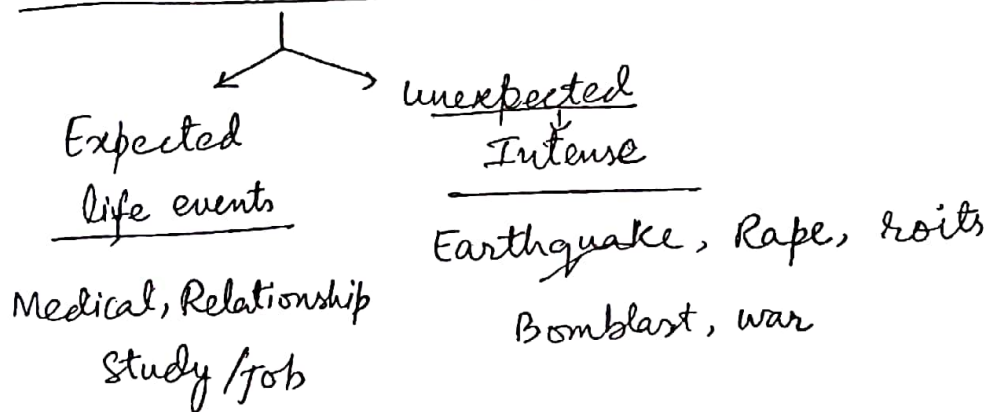 Expected
life events
Medical, Relationship
Study/Job
unexpected
Intense
Earthquake, Rape, roits
Bomblast, war